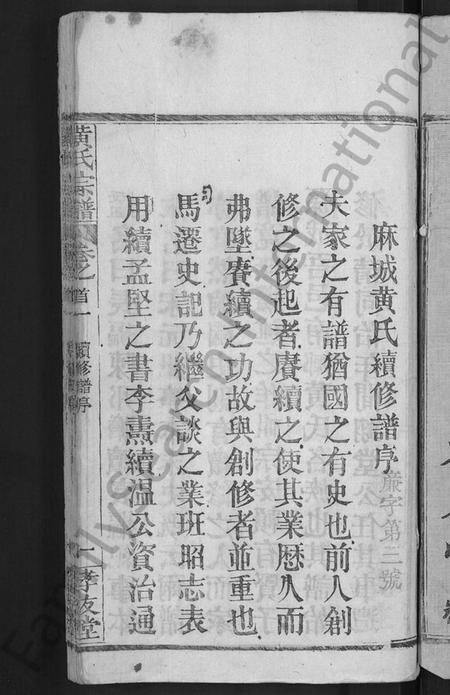 麻城黃氏續修譜序
廉字第二號
夫家之有譜猶國之有史也前人創
修之後起者賡續之使其業歷久而
弗墜賡續之功故與創修者並重也
司馬遷史記乃繼父談之業班昭志表
用續孟堅之書李燾續溫公資治通
黃氏宗譜 卷之首一
續修譜序
一 孝友堂
FamilySearch International